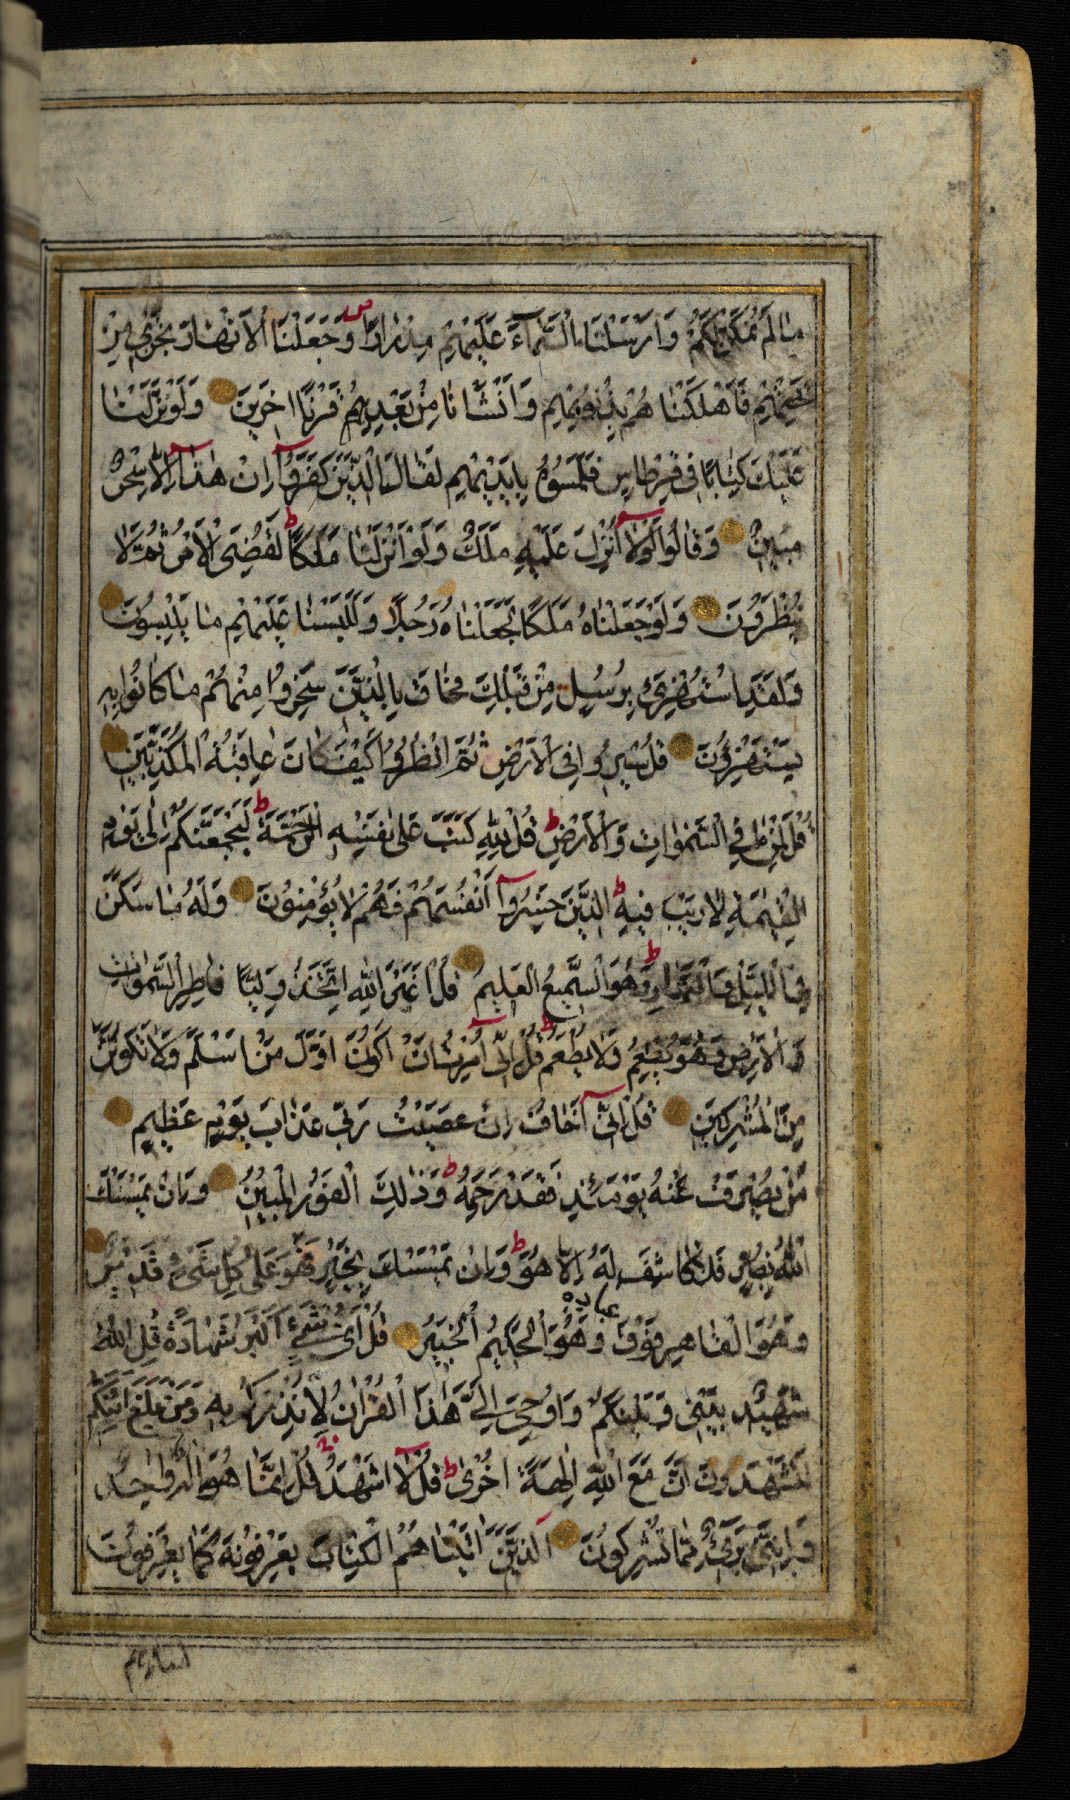 مَا لَمْ نُمَكِّنْ لَكُمْ وَاَرْسَلْنَا السَّمَآءَ عَلَيْهِمْ مِدْرَارًا ص وَجَعَلْنَا الْاَنْهَارَ تَجْرِي مِنْ
تَحْتِهِمْ فَاَهْلَكْنَاهُمْ بِذُنُوبِهِمْ وَاَنْشَأْنَا مِنْ بَعْدِهِمْ قَرْنًا اٰخَرِينَ وَلَوْ نَزَّلْنَا
عَلَيْكَ كِتَابًا فِي قِرْطَاسٍ فَلَمَسُوهُ بِاَيْدِيهِمْ لَقَالَ الَّذِينَ كَفَرُوٓا اِنْ هٰذَآ اِلَّا سِحْرٌ
مُبِينٌ وَقَالُوا لَوْلَآ اُنْزِلَ عَلَيْهِ مَلَكٌ وَلَوْ اَنْزَلْنَا مَلَكًا ط لَقُضِيَ الْاَمْرُ ثُمَّ لَا
يُنْظَرُونَ وَلَوْ جَعَلْنَاهُ مَلَكًا لَجَعَلْنَاهُ رَجُلًا وَلَلَبَسْنَا عَلَيْهِمْ مَا يَلْبِسُونَ
وَلَقَدِ اسْتُهْزِئَ بِرُسُلٍ مِنْ قَبْلِكَ فَحَاقَ بِالَّذِينَ سَخِرُوا مِنْهُمْ مَا كَانُوا بِهِ
يَسْتَهْزِؤُنَ قُلْ سِيرُوا فِي الْاَرْضِ ثُمَّ انْظُرُوا كَيْفَ كَانَ عَاقِبَةُ الْمُكَذِّبِينَ
قُلْ لِمَنْ مَا فِي السَّمٰوَاتِ وَالْاَرْضِ ط قُلْ لِلّٰهِ كَتَبَ عَلٰى نَفْسِهِ الرَّحْمَةَ ط لَيَجْمَعَنَّكُمْ اِلٰى يَوْمِ
الْقِيٰمَةِ لَا رَيْبَ فِيهِ ط الَّذِينَ خَسِرُوٓا اَنْفُسَهُمْ فَهُمْ لَا يُؤْمِنُونَ وَلَهُ مَا سَكَنَ
فِي الَّيْلِ وَالنَّهَارِ ط وَهُوَ السَّمِيعُ الْعَلِيمُ قُلْ اَغَيْرَ اللّٰهِ اَتَّخِذُ وَلِيًّا فَاطِرِ السَّمٰوَاتِ
وَالْاَرْضِ وَهُوَ يُطْعِمُ وَلَا يُطْعَمُ ط قُلْ اِنِّىٓ اُمِرْتُ اَنْ اَكُونَ اَوَّلَ مَنْ اَسْلَمَ وَلَا تَكُونَنَّ
مِنَ الْمُشْرِكِينَ قُلْ اِنِّىٓ اَخَافُ اِنْ عَصَيْتُ رَبِّي عَذَابَ يَوْمٍ عَظِيمٍ
مَنْ يُصْرَفْ عَنْهُ يَوْمَئِذٍ فَقَدْ رَحِمَهُ ط وَذٰلِكَ الْفَوْزُ الْمُبِينُ وَاِنْ يَمْسَسْكَ
اللّٰهُ بِضُرٍّ فَلَا كَاشِفَ لَهُ اِلَّا هُوَ ط وَاِنْ يَمْسَسْكَ بِخَيْرٍ فَهُوَ عَلٰى كُلِّ شَىْءٍ قَدِيرٌ
وَهُوَ الْقَاهِرُ فَوْقَ عباده وَهُوَ الْحَكِيمُ الْخَبِيرُ قُلْ اَىُّ شَىْءٍ اَكْبَرُ شَهَادَةً قُلِ اللّٰهُ
شَهِيدٌ بَيْنِي وَبَيْنَكُمْ وَاُوحِيَ اِلَيَّ هٰذَا الْقُرْاٰنُ لِاُنْذِرَكُمْ بِهِ وَمَنْ بَلَغَ اَئِنَّكُمْ
لَتَشْهَدُونَ اَنَّ مَعَ اللّٰهِ اٰلِهَةً اُخْرٰى ط قُلْ لَآ اَشْهَدُ قُلْ اِنَّمَا هُوَ اِلٰهٌ وَاحِدٌ
وَاِنَّنِي بَرِىءٌ مِمَّا تُشْرِكُونَ اَلَّذِينَ اٰتَيْنَاهُمُ الْكِتَابَ يَعْرِفُونَهُ كَمَا يَعْرِفُونَ
ابناءهم